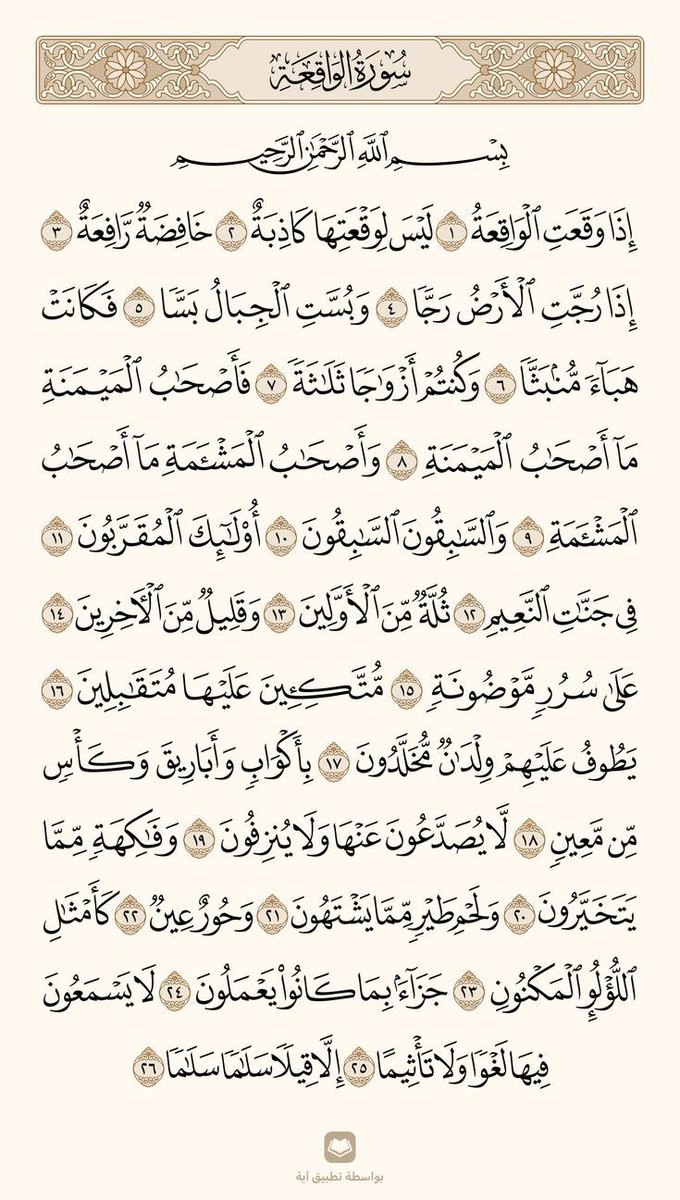 سُورَةُ الوَاقِعَةِ
بِسْمِ ٱللَّهِ ٱلرَّحْمَٰنِ ٱلرَّحِيمِ
إِذَا وَقَعَتِ ٱلْوَاقِعَةُ ١ لَيْسَ لِوَقْعَتِهَا كَاذِبَةٌ ٢ خَافِضَةٌ رَّافِعَةٌ ٣
إِذَا رُجَّتِ ٱلْأَرْضُ رَجًّا ٤ وَبُسَّتِ ٱلْجِبَالُ بَسًّا ٥ فَكَانَتْ
هَبَآءً مُّنۢبَثًّا ٦ وَكُنتُمْ أَزْوَٰجًا ثَلَٰثَةً ٧ فَأَصْحَٰبُ ٱلْمَيْمَنَةِ
مَآ أَصْحَٰبُ ٱلْمَيْمَنَةِ ٨ وَأَصْحَٰبُ ٱلْمَشْـَٔمَةِ مَآ أَصْحَٰبُ
ٱلْمَشْـَٔمَةِ ٩ وَٱلسَّٰبِقُونَ ٱلسَّٰبِقُونَ ١٠ أُو۟لَٰٓئِكَ ٱلْمُقَرَّبُونَ ١١
فِى جَنَّٰتِ ٱلنَّعِيمِ ١٢ ثُلَّةٌ مِّنَ ٱلْأَوَّلِينَ ١٣ وَقَلِيلٌ مِّنَ ٱلْءَاخِرِينَ ١٤
عَلَىٰ سُرُرٍ مَّوْضُونَةٍ ١٥ مُّتَّكِـِٔينَ عَلَيْهَا مُتَقَٰبِلِينَ ١٦
يَطُوفُ عَلَيْهِمْ وِلْدَٰنٌ مُّخَلَّدُونَ ١٧ بِأَكْوَابٍ وَأَبَارِيقَ وَكَأْسٍ
مِّن مَّعِينٍ ١٨ لَّا يُصَدَّعُونَ عَنْهَا وَلَا يُنزِفُونَ ١٩ وَفَٰكِهَةٍ مِّمَّا
يَتَخَيَّرُونَ ٢٠ وَلَحْمِ طَيْرٍ مِّمَّا يَشْتَهُونَ ٢١ وَحُورٌ عِينٌ ٢٢ كَأَمْثَٰلِ
ٱللُّؤْلُؤِ ٱلْمَكْنُونِ ٢٣ جَزَآءًۢ بِمَا كَانُوا۟ يَعْمَلُونَ ٢٤ لَا يَسْمَعُونَ
فِيهَا لَغْوًا وَلَا تَأْثِيمًا ٢٥ إِلَّا قِيلًا سَلَٰمًا سَلَٰمًا ٢٦
بواسطة تطبيق آية